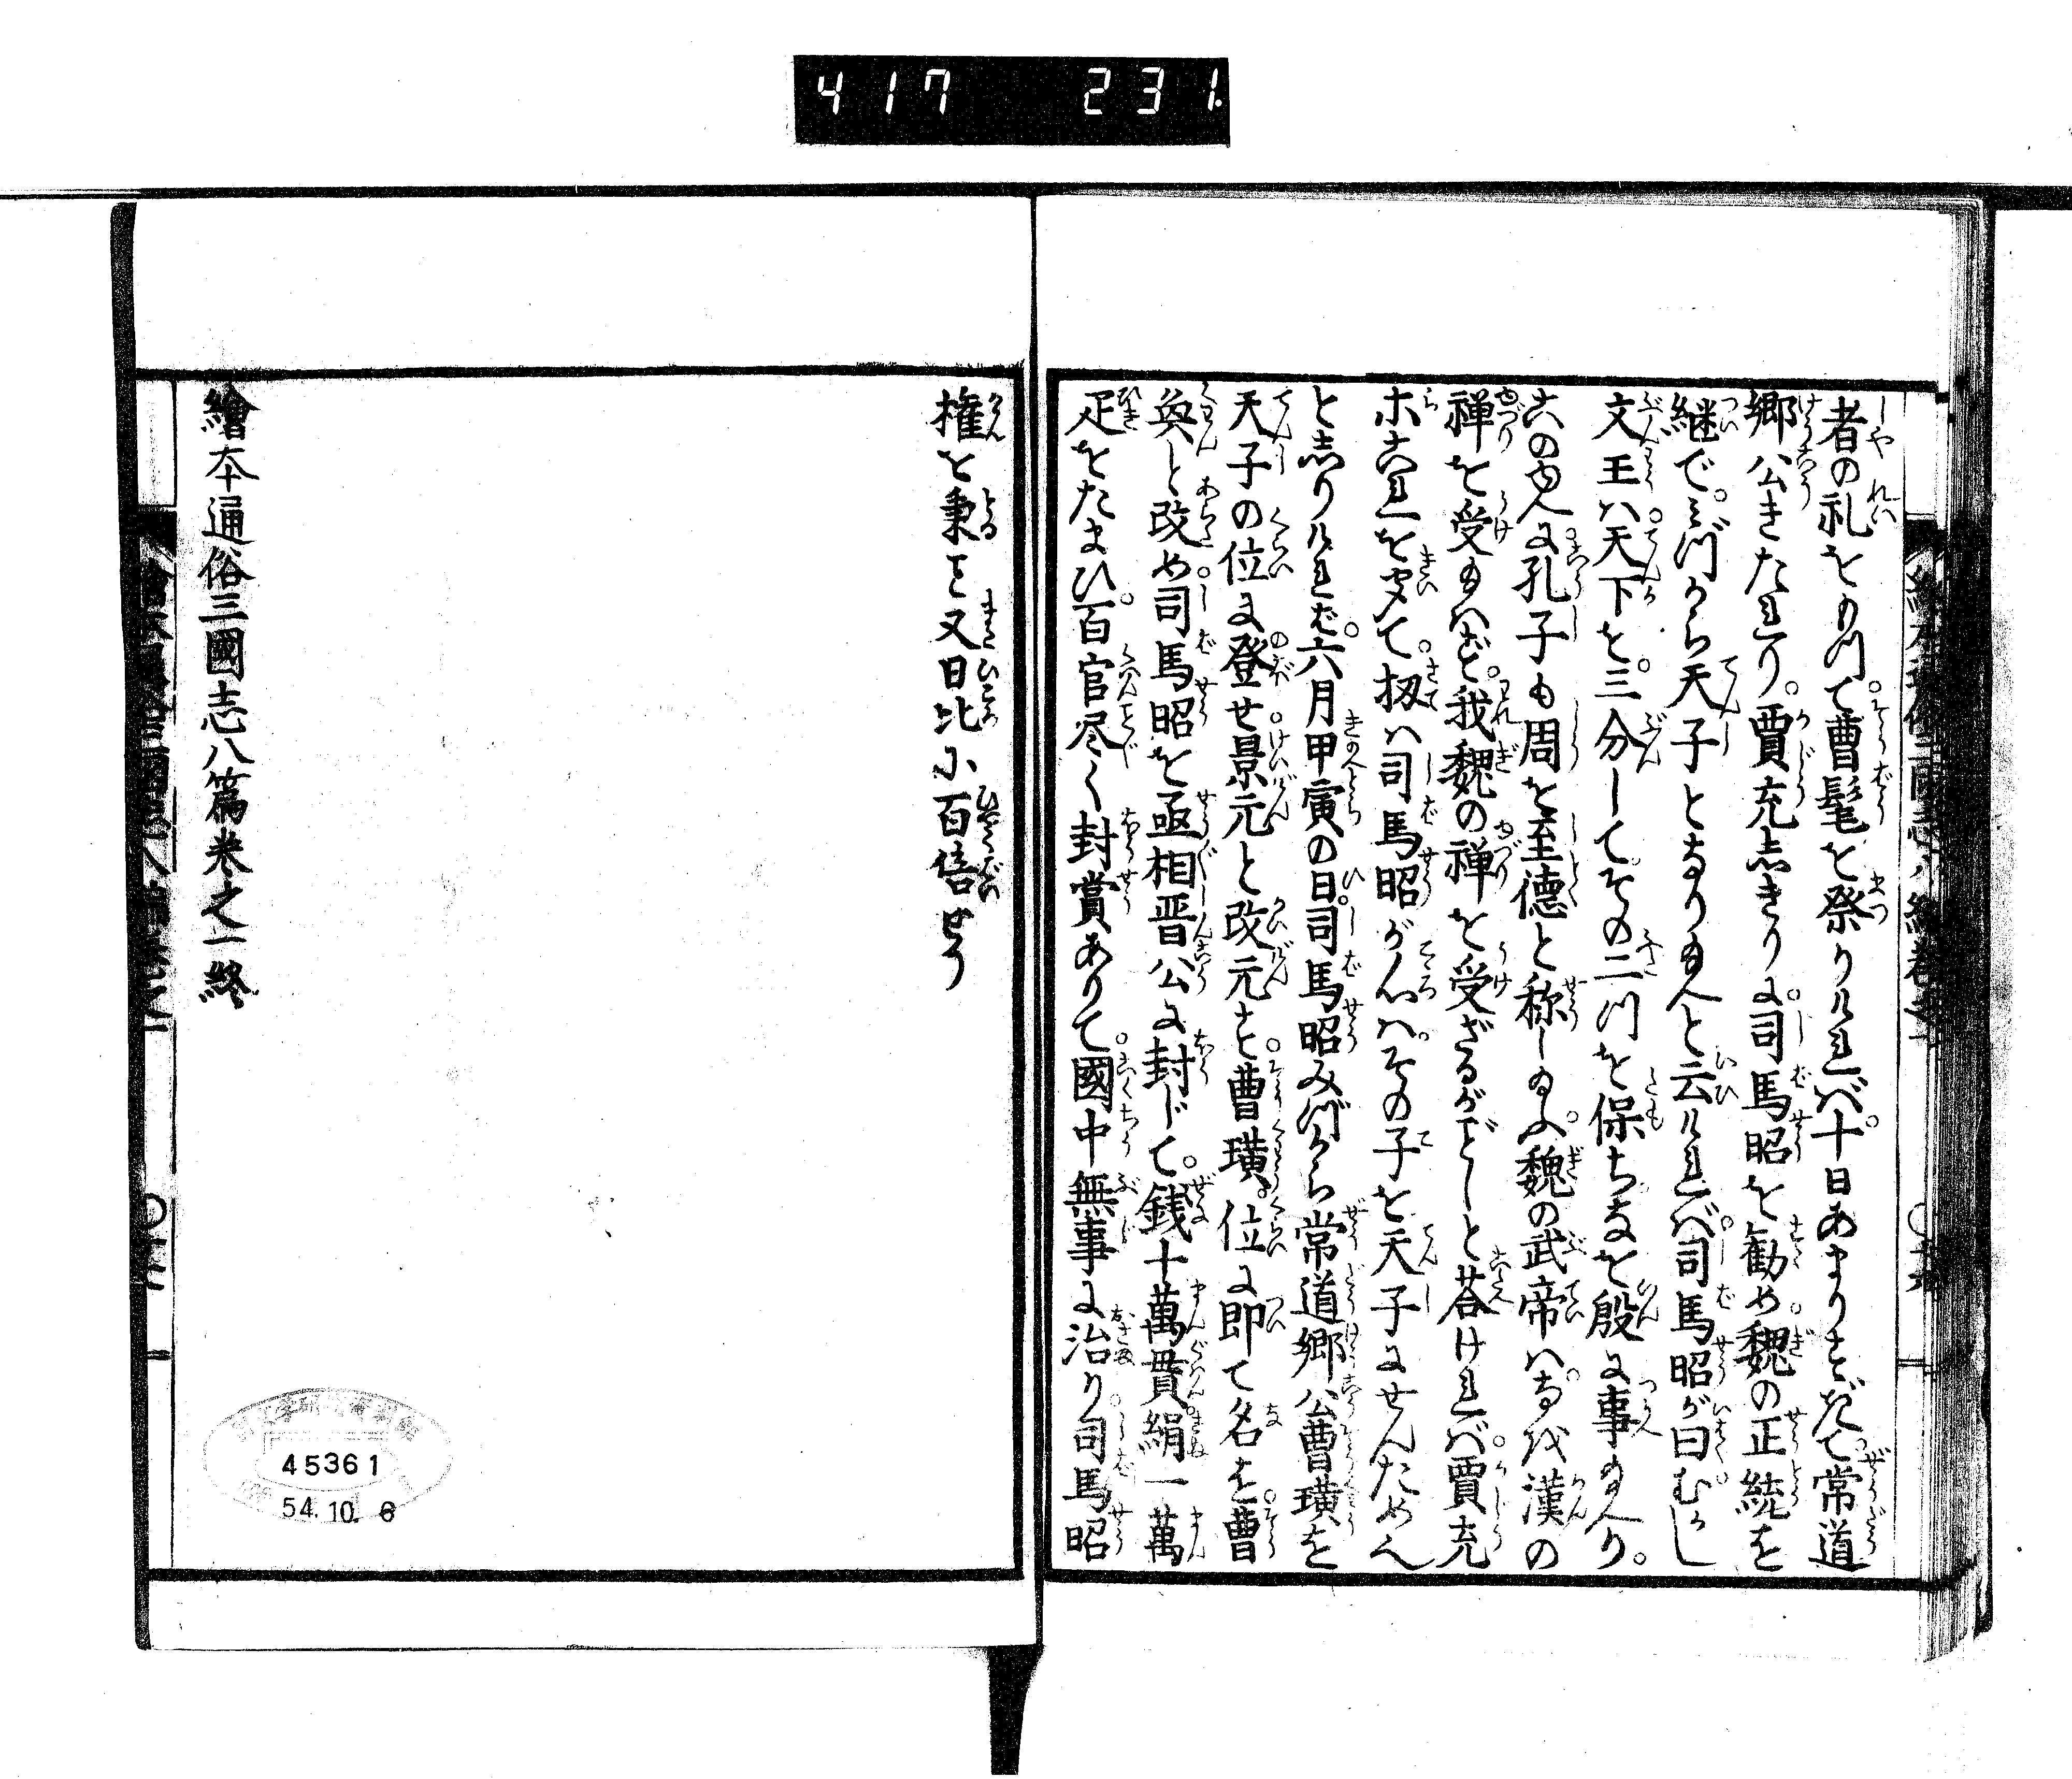 417 231.
者の礼をもつて曹髦を祭りければ。十日あまりをへて常道
郷公きたれり。賈充しきりに司馬昭を勧め。魏の正統を
継で。みづから天子となり給へと云ければ。司馬昭が曰むかし
文王は。天下を。三分してその二つを保ちなを殷に事給へり。
このゆへに。孔子も周を至徳と称し給ふ。魏の武帝は。なを漢の
禅を受給はず。我魏の禅を受ざるがごとしと荅ければ。賈充
ホこれをきいて。扨は司馬昭が心は。その子を天子にせんためと
としりければ。六月甲寅の日。司馬昭みづから常道郷公曹璜を
天子の位に登せ。景元と改元す。曹璜。位に即て名を。曹
奐と改め。司馬昭を亟相晋公に封じて。銭十萬貫。絹一萬
疋をたまひ。百官尽く封賞ありて。國中無事に治り。司馬昭
権を秉こと又日比に百倍せり
繪本通俗三國志八篇巻之一終
45361
54.10.6